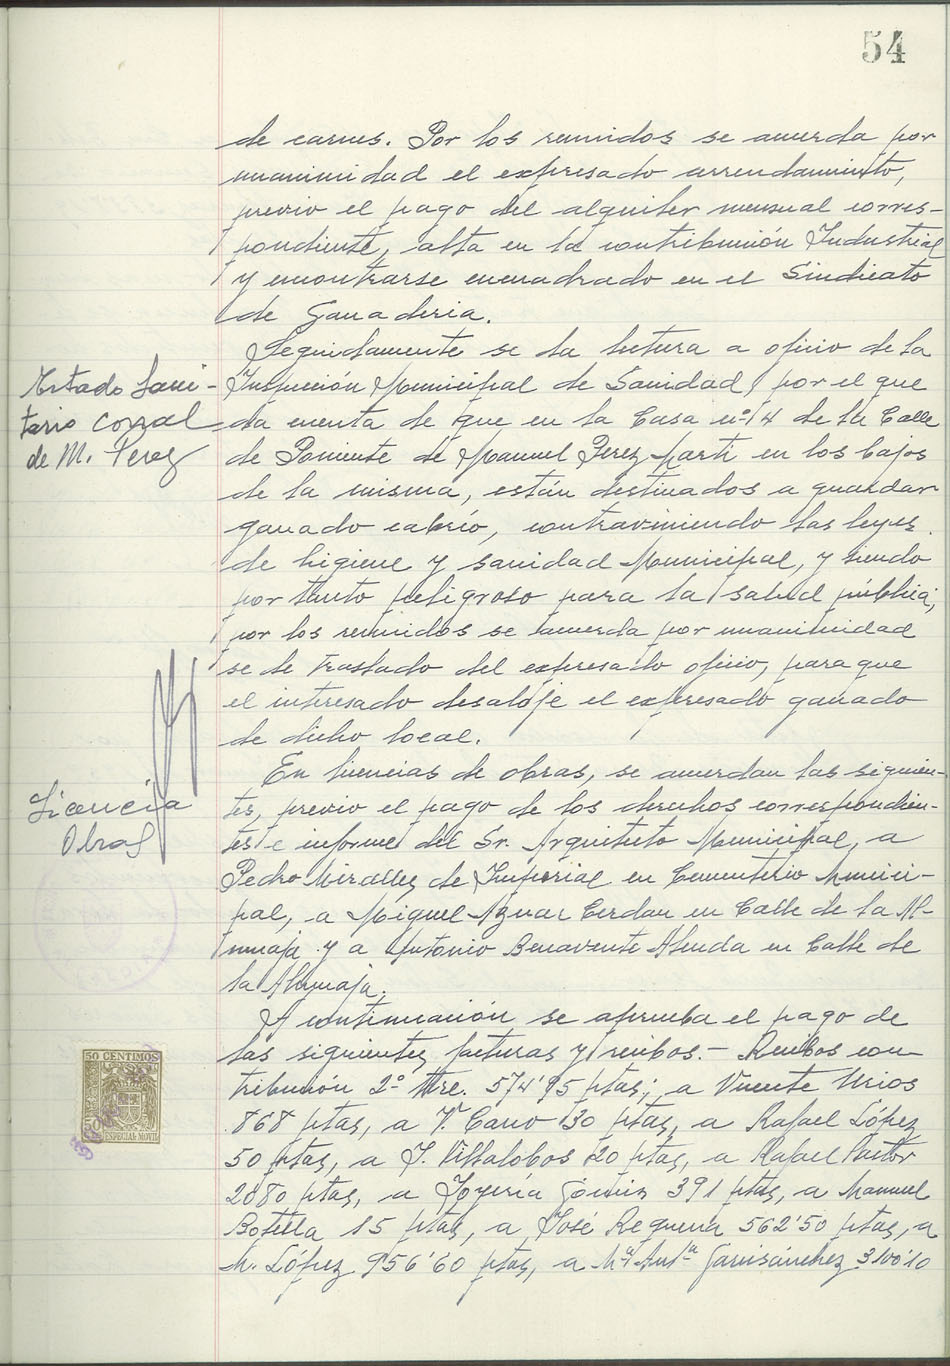 54
de carnes. Por los reunidos se acuerda por
unanimidad el expresado arrendamiento,
previo el pago del alquiler mensual corres-
pondiente, alta en la contribución Industrial
y encontrarse encuadrado en el Sindicato
de Ganaderia.
Seguidamente se da lectura a oficio de la
Estado Sani-
tario corral
de M. Perez
Inspección Municipal de Sanidad, por el que
da cuenta de que en la Casa nº 14 de la Calle
de Poniente de Manuel Perez Marti en los bajos
de la misma, están destinados a guardar
ganado cabrío, contraviniendo las leyes
de higiene y sanidad Municipal, y siendo
por tanto peligroso para la salud pública;
por los reunidos se acuerda por unanimidad
se de traslado del expresado oficio, para que
el interesado desaloje el expresado ganado
de dicho local.
Licencia
Obras
En licencias de obras, se acuerdan las siguien-
tes, previo el pago de los derechos correspondien-
tes e informe del Sr. Arquitecto Municipal, a
Pedro Miralles de Imperial en Cementerio Munici-
pal, a Miguel Aznar Cerdan en Calle de la Al-
munaja y a Antonio Benavente Alenda en Calle de
la
A continuación se aprueba el pago de
las siguientes facturas y recibos.- Recibos con-
tribunión 2º Tre. 574'95 ptas; a Vicente Urios
868 ptas, a Vte Cano 130 ptas, a Rafael López
50 ptas, a J. Villalobos 20 ptas, a Rafael Pastor
2080 ptas, a Joyería Gómiz 391 ptas, a Manuel
Botella 15 ptas, a José Requena 562'50 ptas, a
M. López 956'60 ptas, a Mª Antª Garcisánchez 3100'10
50 CENTIMOS
ESPECIAL MOVIL